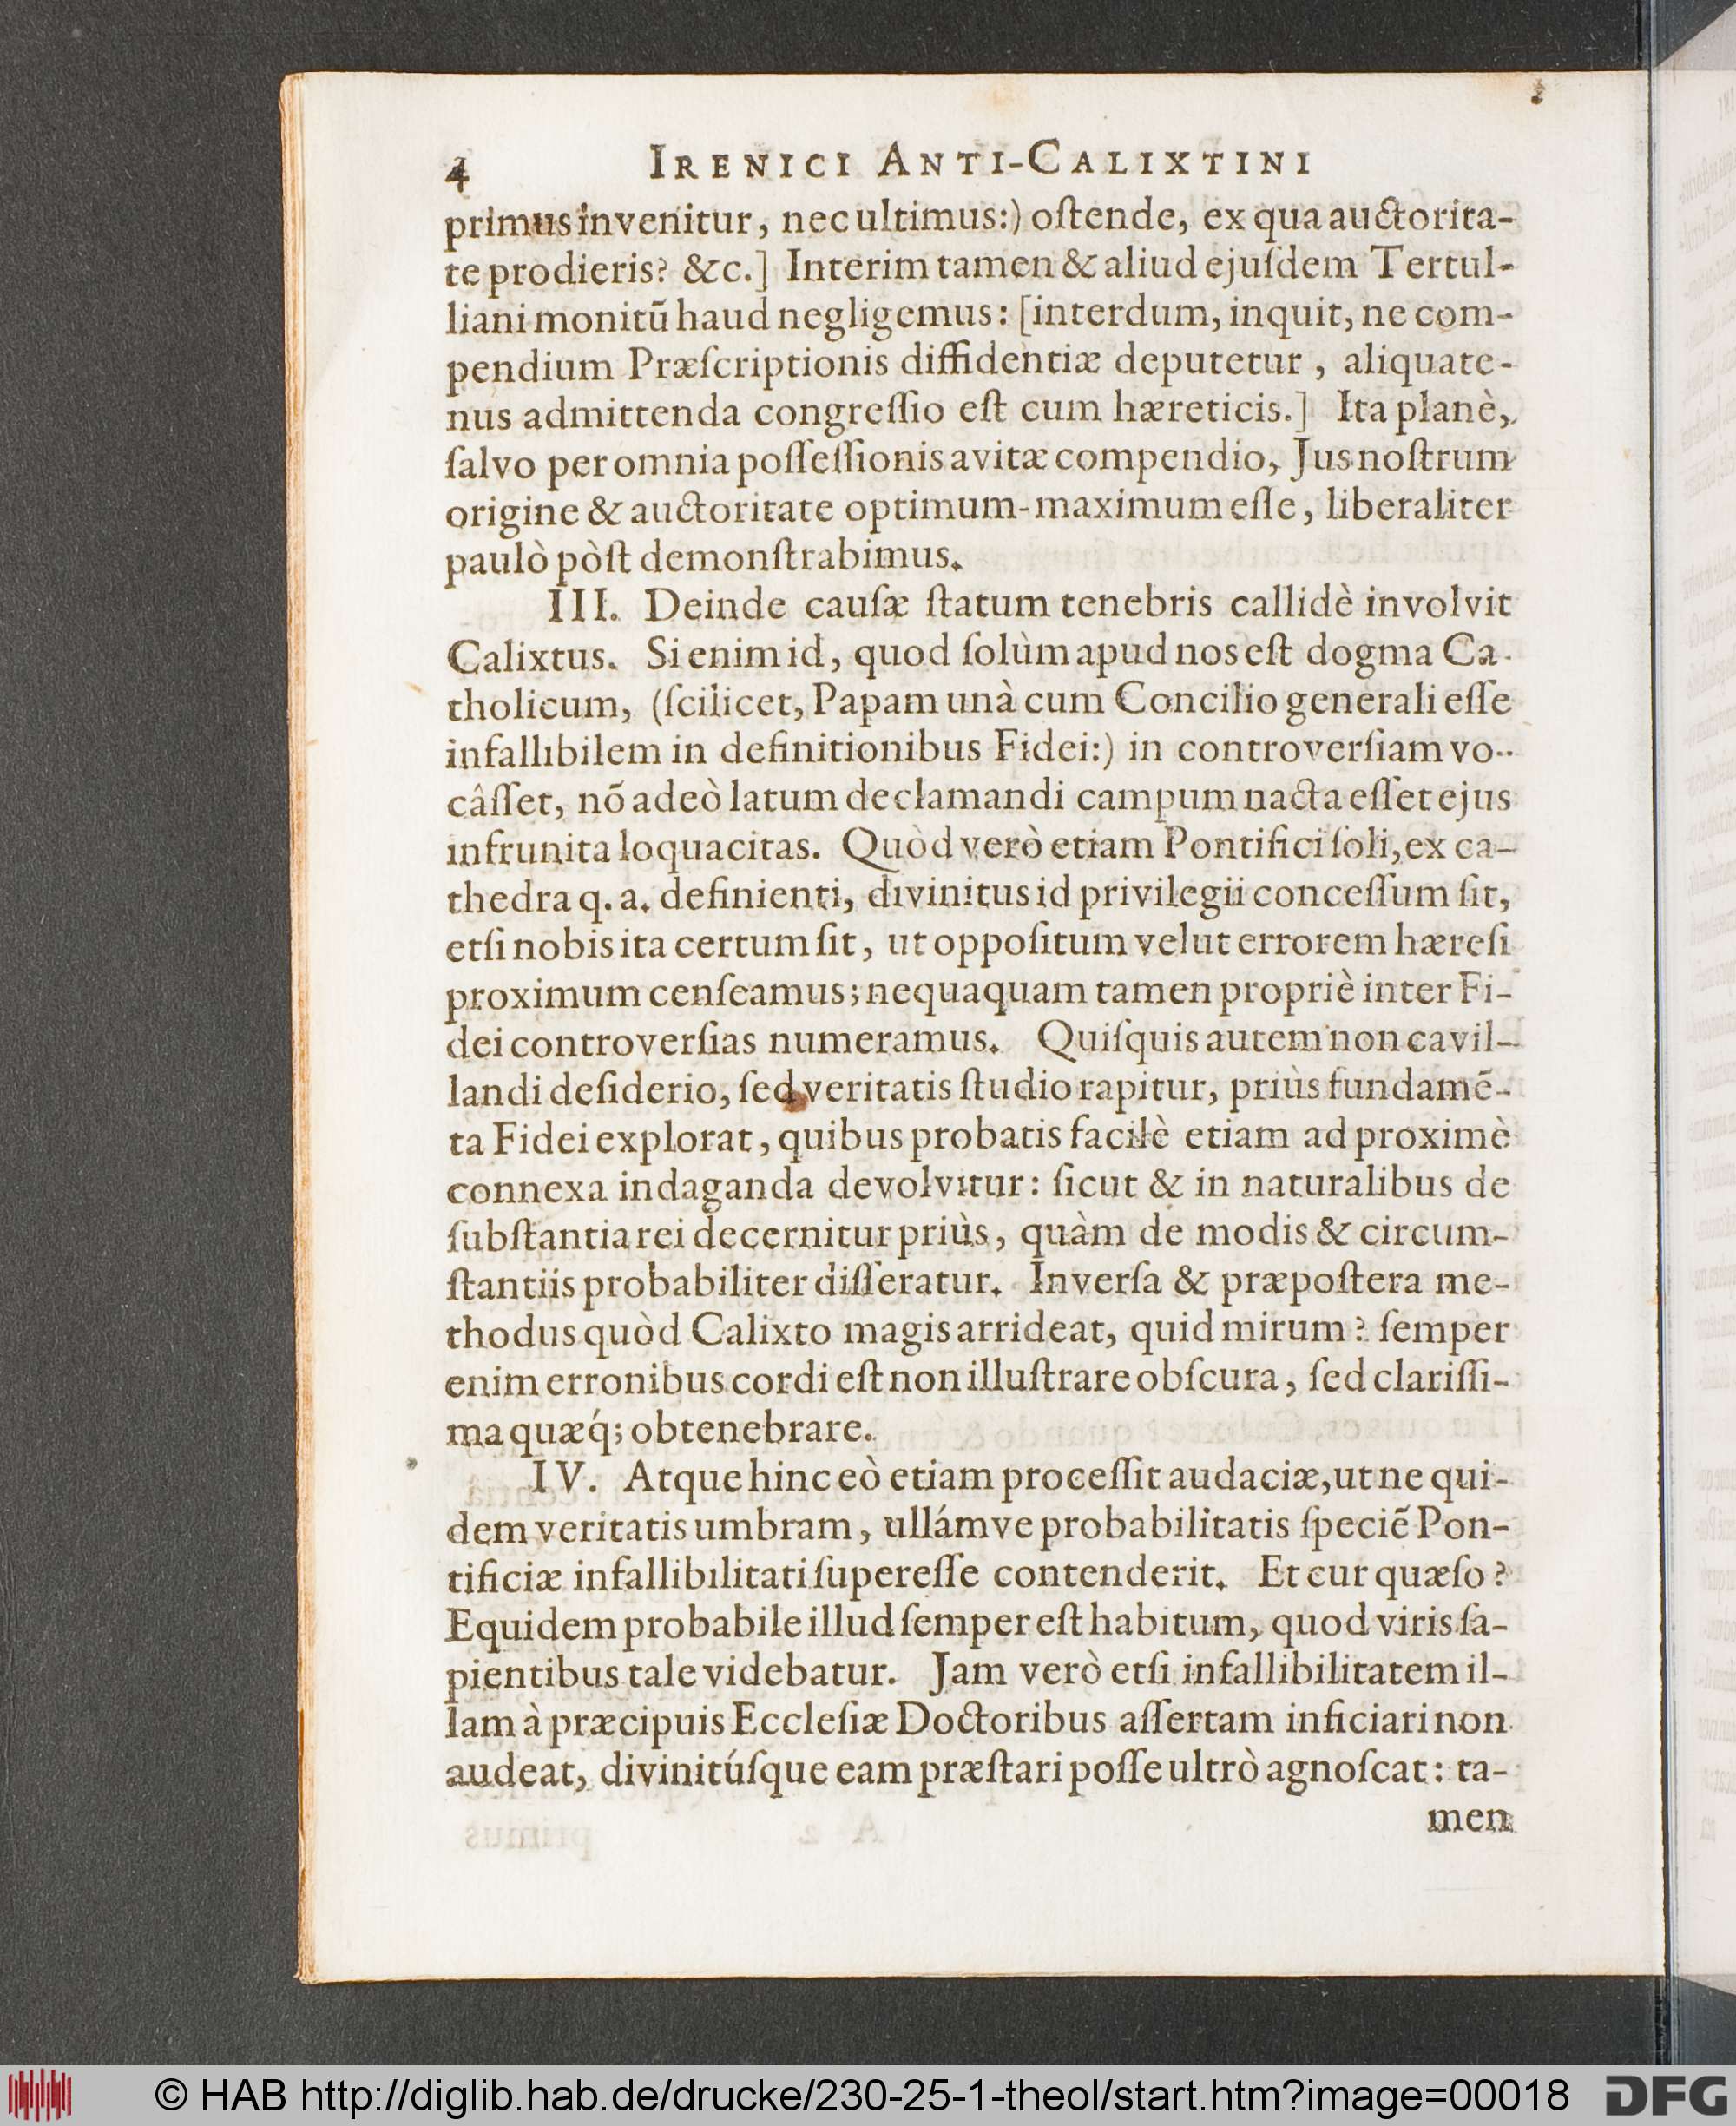 4 IRENICI ANTI-CALIXTINI
primus invenitur, nec ultimus:) oſtende, ex qua auctorita-
te prodieris? &c.] Interim tamen & aliud ejuſdem Tertul-
liani monitū haud negligemus: [interdum, inquit, ne com-
pendium Præſcriptionis diffidentiæ deputetur, aliquate-
nus admittenda congreſſio eſt cum hæreticis.] Ita planè,
ſalvo per omnia poſſeſſionis avitæ compendio, Jus noſtrum
origine & auctoritate optimum-maximum eſſe, liberaliter
paulò pòſt demonſtrabimus.
III. Deinde cauſæ ſtatum tenebris callidè involvit
Calixtus. Si enim id, quod ſolùm apud nos eſt dogma Ca-
tholicum, (ſcilicet, Papam unà cum Concilio generali eſſe
infallibilem in definitionibus Fidei:) in controverſiam vo-
câſſet, nō adeò latum declamandi campum nacta eſſet ejus
infrunita loquacitas. Quòd verò etiam Pontifici ſoli, ex ca-
thedra q. a. definienti, divinitus id privilegii conceſſum ſit,
etſi nobis ita certum ſit, ut oppoſitum velut errorem hæreſi
proximum cenſeamus; nequaquam tamen propriè inter Fi-
dei controverſias numeramus. Quiſquis autem non cavil-
landi deſiderio, ſed veritatis ſtudio rapitur, priùs fundamē-
ta Fidei explorat, quibus probatis facilè etiam ad proximè
connexa indaganda devolvitur: ſicut & in naturalibus de
ſubſtantia rei decernitur priùs, quàm de modis & circum-
ſtantiis probabiliter diſſeratur. Inverſa & præpoſtera me-
thodus quòd Calixto magis arrideat, quid mirum? ſemper
enim erronibus cordi eſt non illuſtrare obſcura, ſed clariſſi-
ma quæq́; obtenebrare.
IV. Atque hinc eò etiam proceſſit audaciæ, ut ne qui-
dem veritatis umbram, ullámve probabilitatis ſpeciē Pon-
tificiæ infallibilitati ſupereſſe contenderit. Et cur quæſo?
Equidem probabile illud ſemper eſt habitum, quod viris ſa-
pientibus tale videbatur. Jam verò etſi infallibilitatem il-
lam à præcipuis Eccleſiæ Doctoribus aſſertam inficiari non
audeat, divinitúſque eam præſtari poſſe ultrò agnoſcat: ta-
men
© HAB http://diglib.hab.de/drucke/230-25-1-theol/start.htm?image=00018
DFG